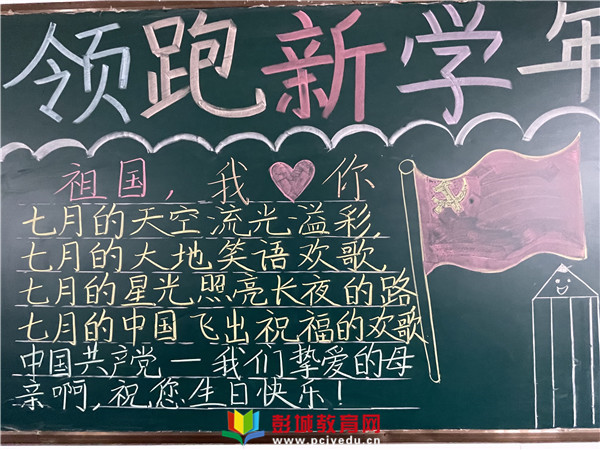 领跑新学年
祖国,我♥你
七月的天空流光溢彩,
七月的大地笑语欢歌,
七月的星光照亮长夜的路
七月的中国飞出祝福的欢歌
中国共产党—我们挚爱的母
亲啊,祝您生日快乐!
彭城教育网
www.pcivedu.cn